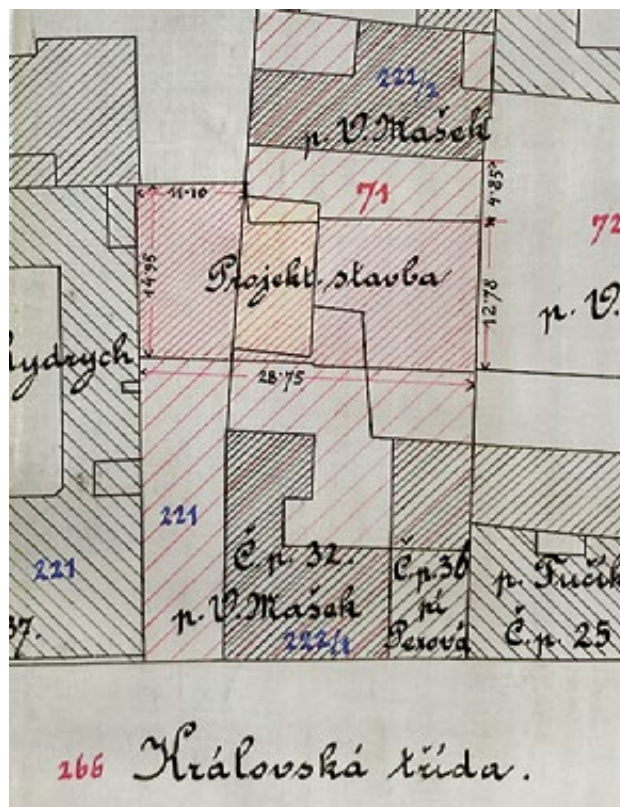 222/2
p. V. Mašek
71
4·85
11·10
14·95
Projekt. stavba
12·78
72
p. V.
hydrych
28·75
221
221
Č. p. 32.
p. V. Mašek
222/1
Č. p. 36
pí
Pexová
p. Fučík
Č. p. 25
37.
266 Královská třída.